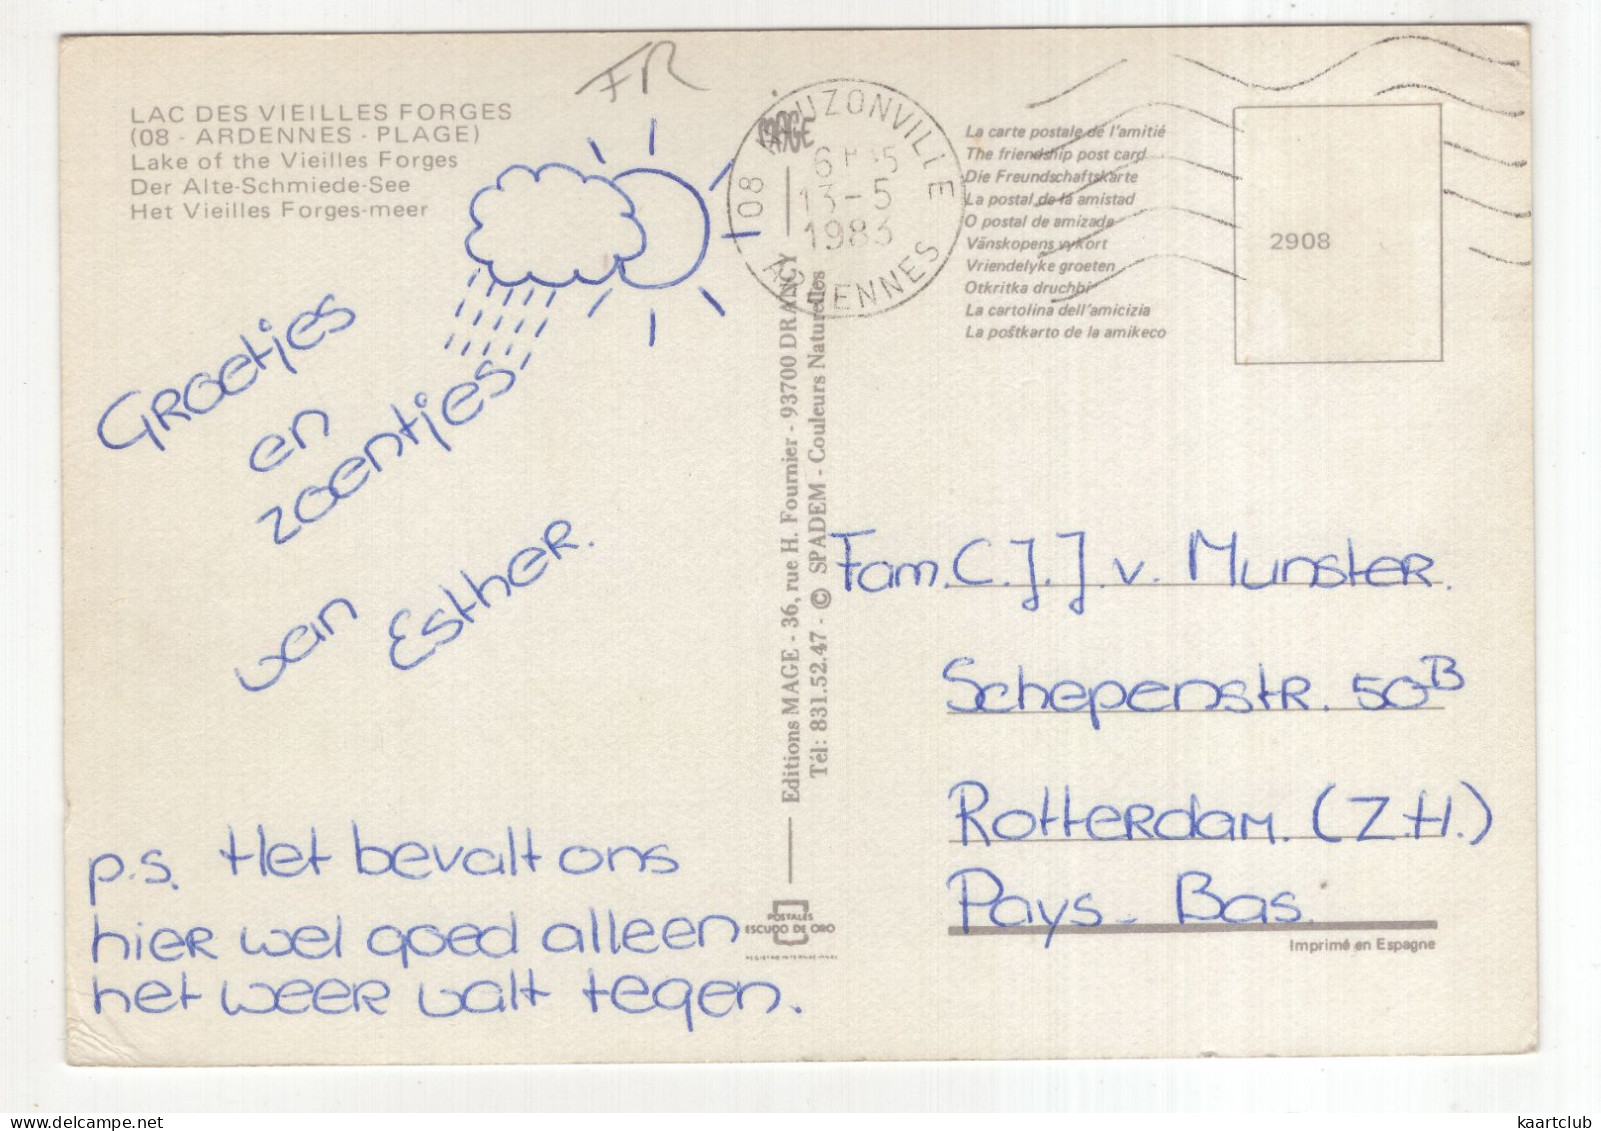 LAC DES VIEILLES FORGES
(08 - ARDENNES - PLAGE)
Lake of the Vieilles Forges
Der Alte-Schmiede-See
Het Vieilles Forges-meer
FR
Groetjes
en
zoentjes
van Esther.
p.s. Het bevalt ons
hier wel goed alleen
het weer valt tegen.
MAGE
Editions MAGE - 36, rue H. Fournier - 93700 DRANCY
Tél: 831.52.47 - © SPADEM - Couleurs Naturelles
POSTALES
ESCUDO DE ORO
08
13-5
1983
ARDENNES
La carte postale de l'amitié
The friendship post card
Die Freundschaftskarte
La postal de la amistad
O postal de amizade
Vänskopens vykort
Vriendelyke groeten
Otkritka druchbi
La cartolina dell'amicizia
La poŝtkarto de la amikeco
2908
Fam. C.J.J. v. Munster.
Schepenstr. 50B
Rotterdam. (Z.H.)
Pays-Bas.
Imprimé en Espagne
kaartclub